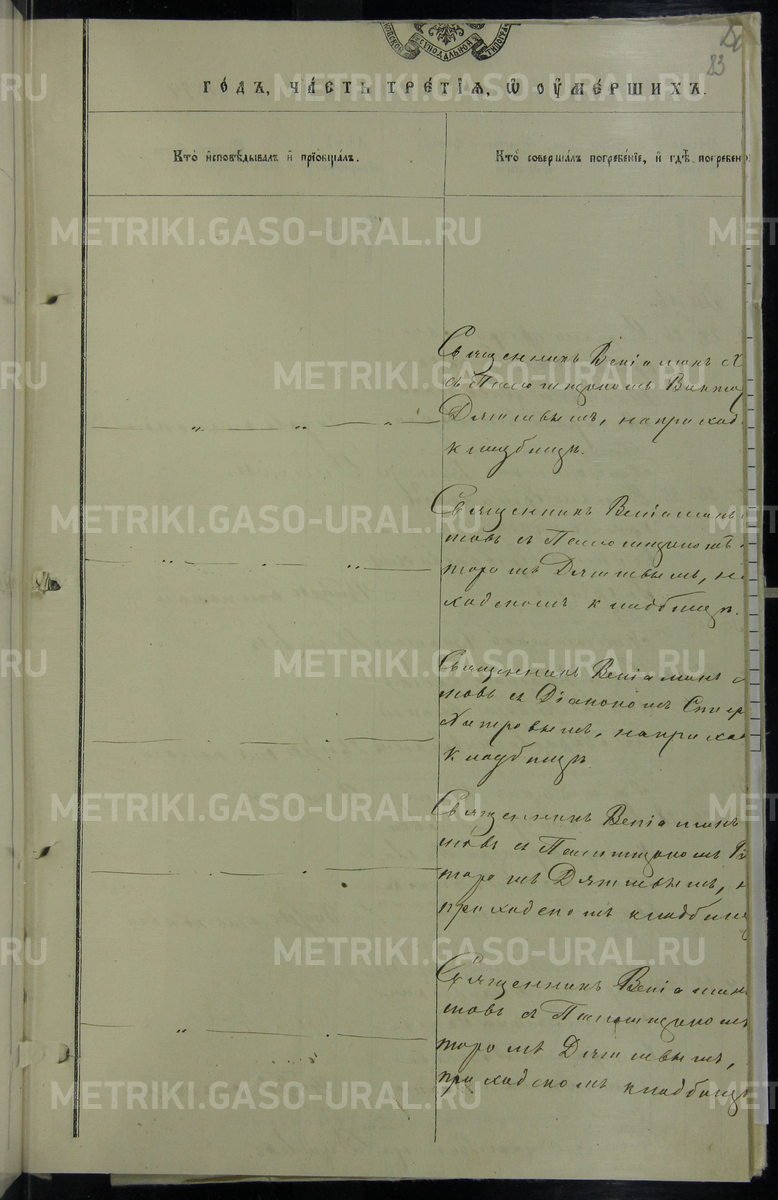 83
го́дъ, ча́сть тре́тїѧ, ѽ оу҆ме́ршихъ.
Кто̀ и҆сповѣ́дывалъ и҆ прїѡбща́лъ.
Кто̀ соверша́лъ погребе́нїе, и҆ гдѣ̀ погребен
Священникъ Веніаминъ
съ Псаломщикомъ Викто
Дягилевымъ, на приход
кладбищѣ.
Священникъ Веніаминъ
товъ съ Псаломщикомъ
торомъ Дягилевымъ, н
ходскомъ кладбищѣ.
Священникъ Веніаминъ
товъ съ Діакономъ
на прихо
кладбищѣ
Священникъ Веніаминъ
товъ съ Псаломщикомъ Ви
торомъ Дягилевымъ, н
приходскомъ кладбищ
Священникъ Веніамин
товъ съ Псаломщикомъ
торомъ Дягилевымъ,
приходскомъ кладбищ
METRIKI.GASO-URAL.RU